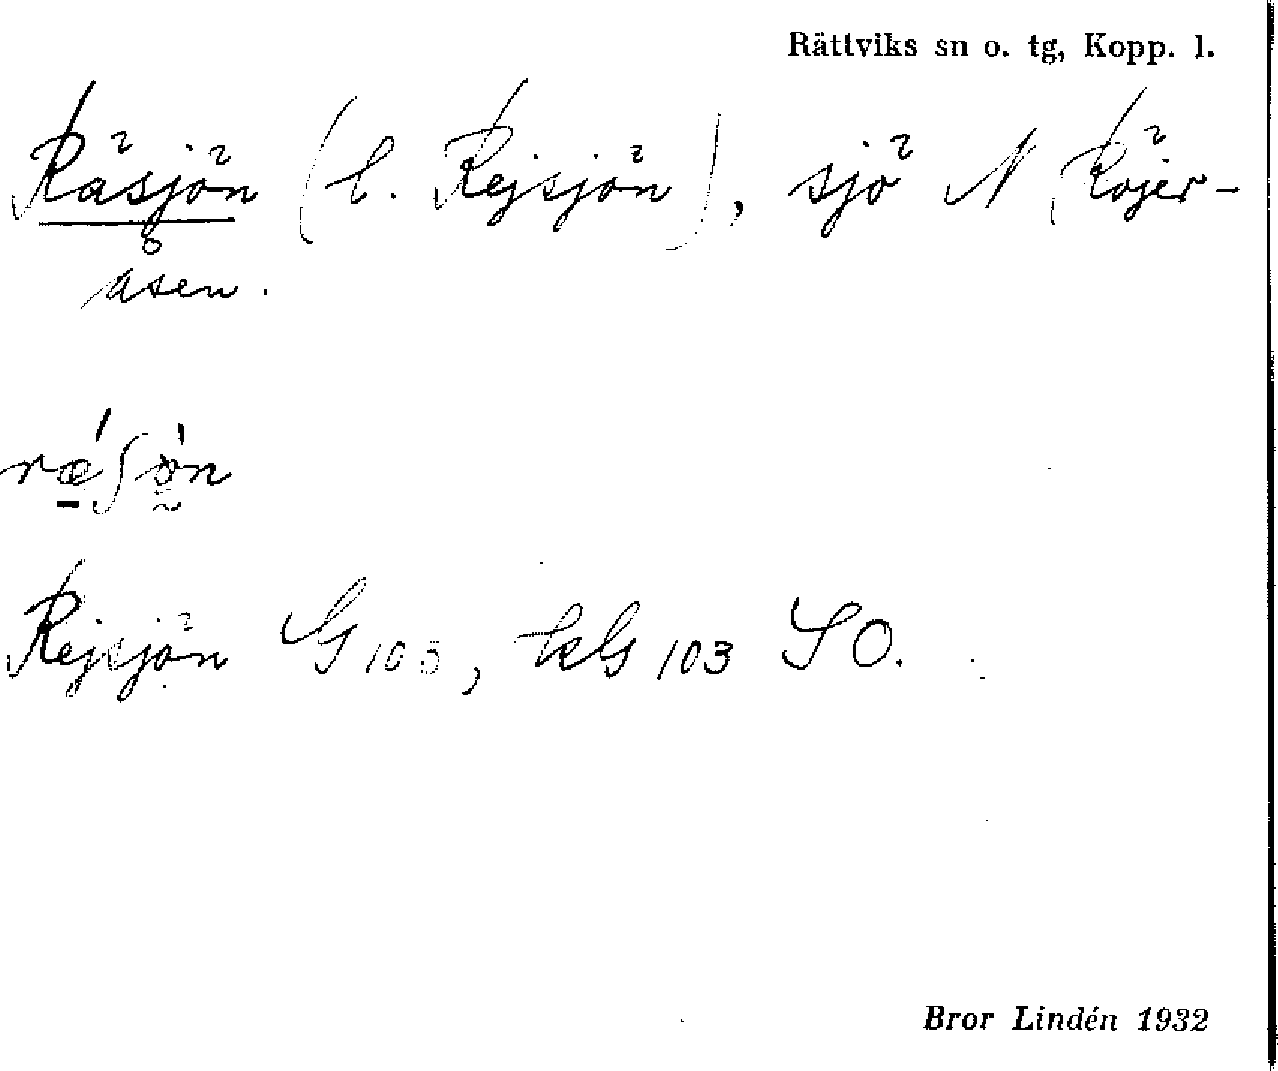 Rättviks sn o. tg, Kopp. l.
Räsjön (l. Rejsjön), sjö N Röjer-
åsen.
Rejsjön G 103, kG 103 SO.
Bror Lindén 1932